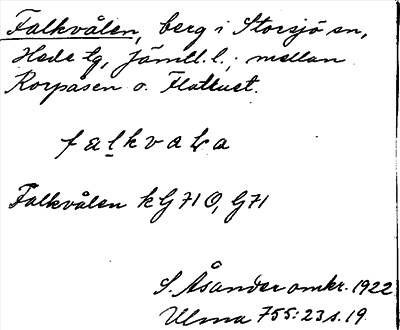 Falkvålen, berg i Storsjö sn,
Hede tg, Jämtl. l.; mellan
Korpåsen o. Flatkust.
falkvaLa
Falkvålen kG 71 O, G 71
S. Åsander omkr. 1922
Ulma 755:23 s. 19